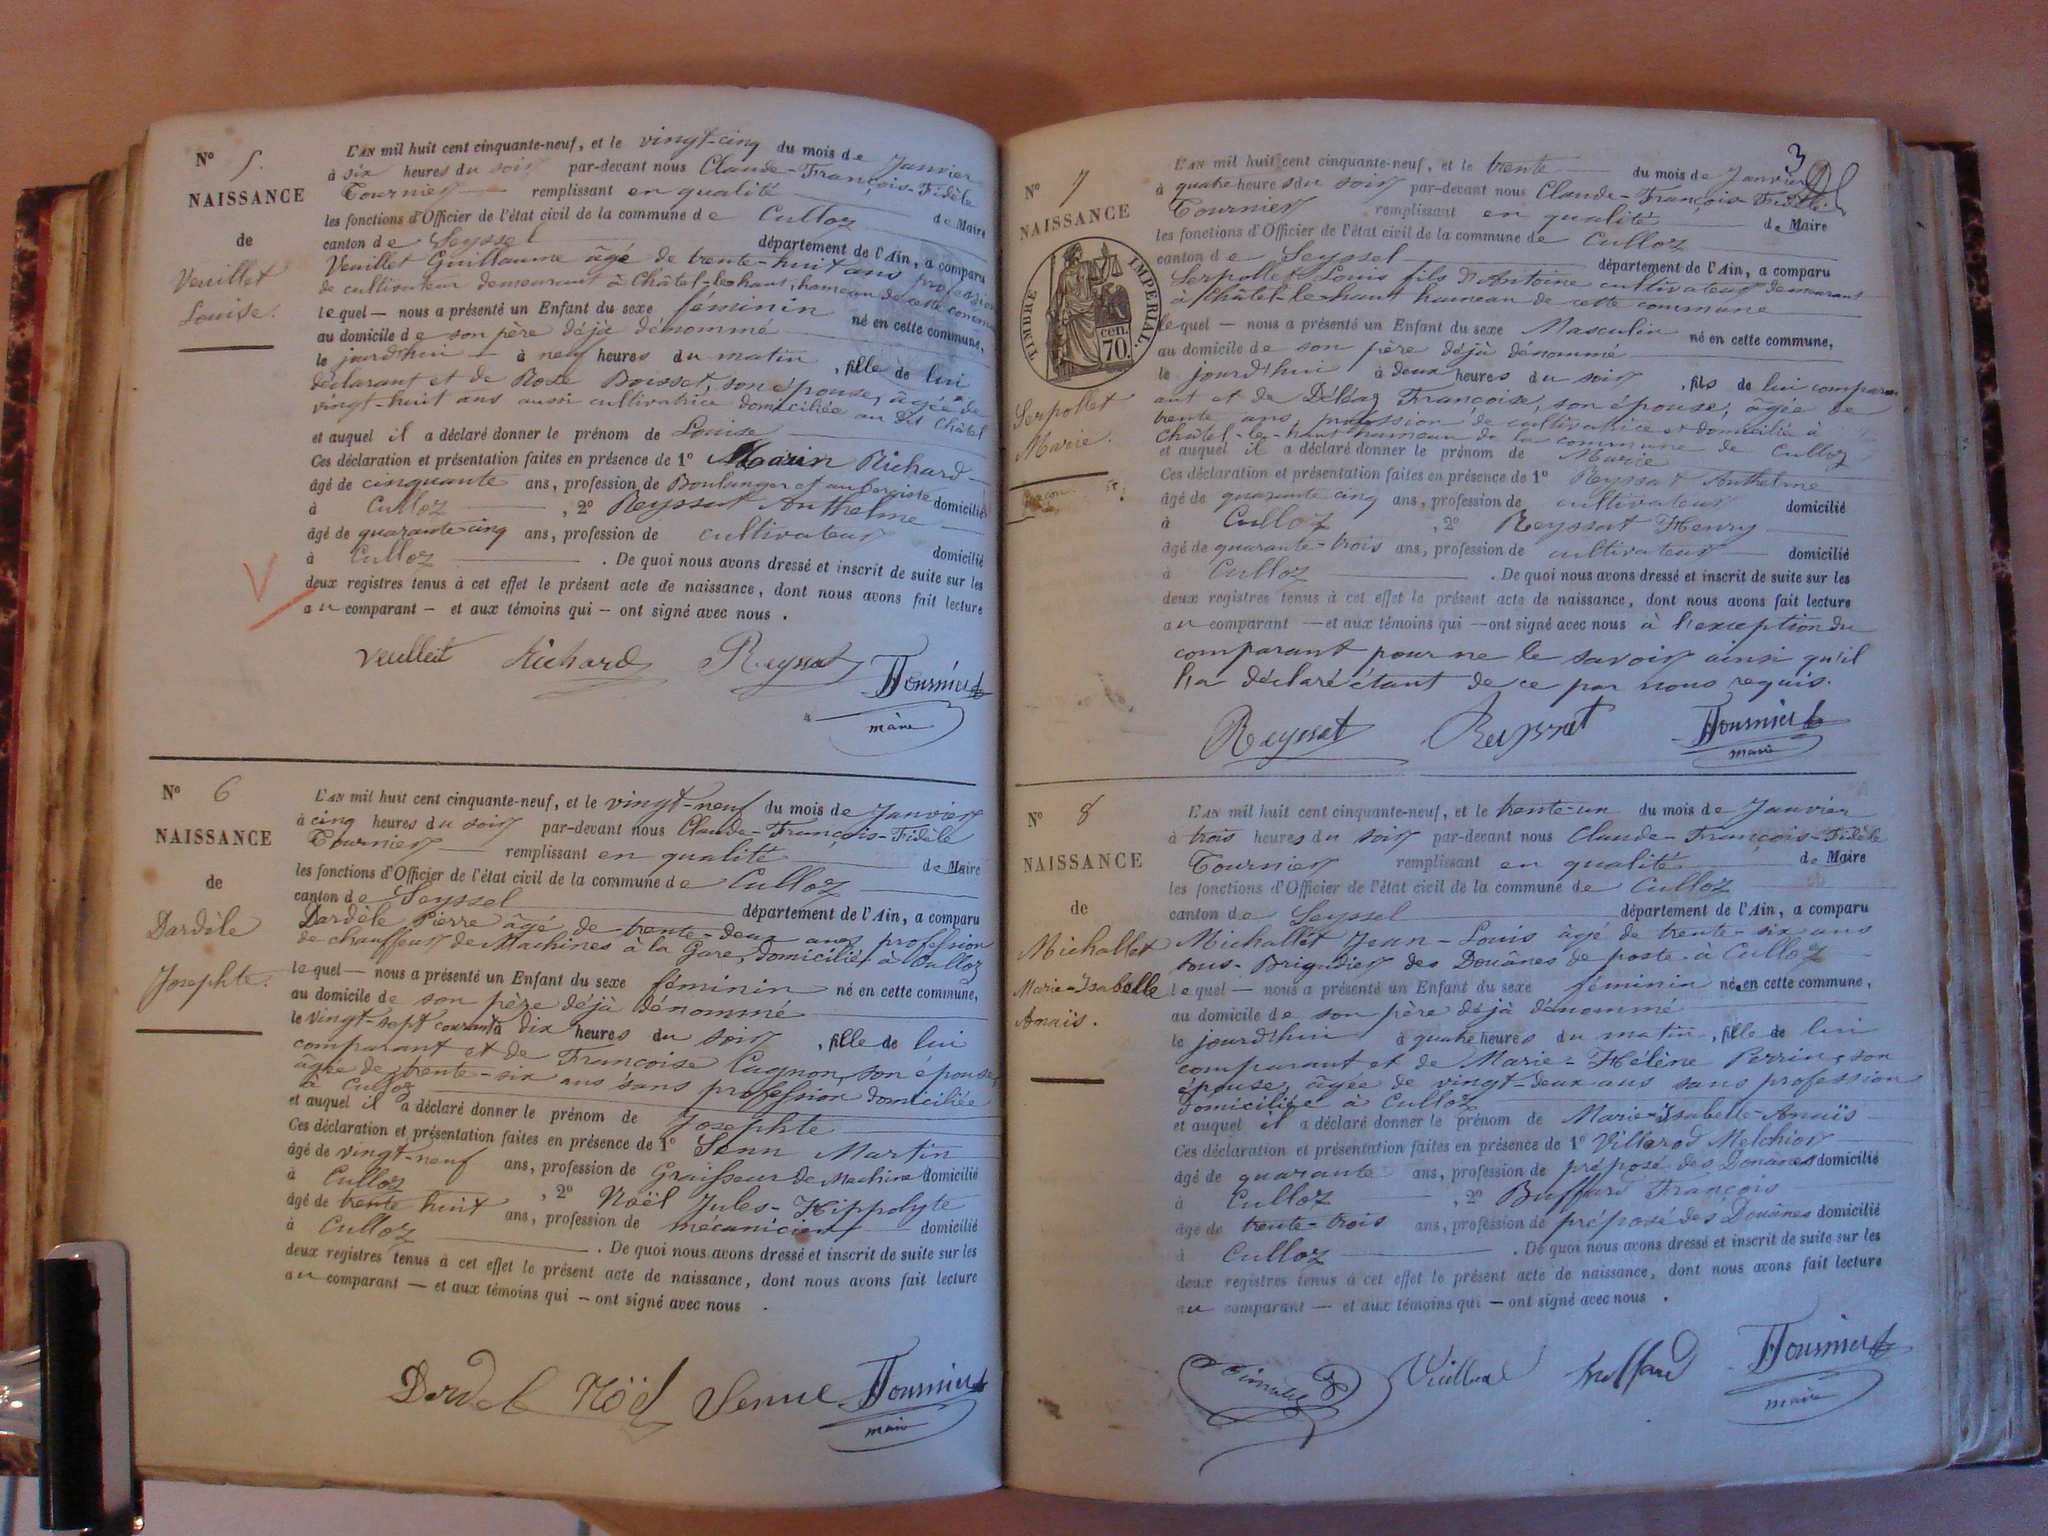 N° 5.
NAISSANCE
de
Veuillet
Louise.
L'AN mil huit cent cinquante-neuf, et le vingt-cinq du mois de Janvier
à six heures du soir par-devant nous Claude-François-Fidèle
Tournier remplissant en qualité de Maire
les fonctions d'Officier de l'état civil de la commune de Culloz
canton de Seyssel département de l'Ain, a comparu
Veuillet Guillaume âgé de trente-huit ans profession
de cultivateur demeurant à Châtel-le-haut, hameau de cette commune
lequel — nous a présenté un Enfant du sexe féminin né en cette commune,
au domicile de son père déjà dénommé
le jourd'hui à neuf heures du matin, fille de lui
déclarant et de Roze Boisset, son épouse, âgée de
vingt-huit ans aussi cultivatrice domiciliée au dit Châtel
et auquel il a déclaré donner le prénom de Louise
Ces déclaration et présentation faites en présence de 1° Marin Richard
âgé de cinquante ans, profession de Boulanger et aubergiste domicilié
à Culloz , 2° Reyssat Anthelme
âgé de quarante-cinq ans, profession de cultivateur domicilié
à Culloz . De quoi nous avons dressé et inscrit de suite sur les
deux registres tenus à cet effet le présent acte de naissance, dont nous avons fait lecture
au comparant — et aux témoins qui — ont signé avec nous .
Veuillet Richard Reyssat Tournier
maire
N° 6
NAISSANCE
de
Dardèle
Josephte.
L'AN mil huit cent cinquante-neuf, et le vingt-neuf du mois de Janvier
à cinq heures du soir par-devant nous Claude-François-Fidèle
Tournier remplissant en qualité de Maire
les fonctions d'Officier de l'état civil de la commune de Culloz
canton de Seyssel département de l'Ain, a comparu
Dardèle Pierre âgé de trente-deux ans profession
de chauffeur de Machines à la Gare, domicilié à Culloz
lequel — nous a présenté un Enfant du sexe féminin né en cette commune,
au domicile de son père déjà dénommé
le vingt-sept courant à dix heures du soir , fille de lui
comparant et de Francoise Cagnon, son épouse,
âgée de trente-six ans sans profession domiciliée
à Culloz
et auquel il a déclaré donner le prénom de Josephte
Ces déclaration et présentation faites en présence de 1° Senn Martin
âgé de vingt-neuf ans, profession de Graisseur de Machine domicilié
à Culloz , 2° Noël Jules-Hippolyte
âgé de trente huit ans, profession de mécanicien domicilié
à Culloz . De quoi nous avons dressé et inscrit de suite sur les
deux registres tenus à cet effet le présent acte de naissance, dont nous avons fait lecture
au comparant — et aux témoins qui — ont signé avec nous .
Dardel Noël Senne Tournier
maire
3
N° 7
NAISSANCE
TIMBRE IMPERIAL.
cen.
70.
Serpollet
Marie.
L'AN mil huit cent cinquante-neuf, et le trente du mois de Janvier
à quatre heures du soir par-devant nous Claude-François-Fidèle
Tournier remplissant en qualité de Maire
les fonctions d'Officier de l'état civil de la commune de Culloz
canton de Seyssel département de l'Ain, a comparu
Serpollet Louis fils d'Antoine cultivateur demeurant
à Châtel-le-haut hameau de cette commune
lequel — nous a présenté un Enfant du sexe Masculin né en cette commune,
au domicile de son père déjà dénommé
le jourd'hui à deux heures du soir , fils de lui compar
ant et de Déléaz Francoise, son épouse, âgée de
trente ans profession de cultivatrice et domiciliée à
Châtel-le-haut hameau de la commune de Culloz
et auquel il a déclaré donner le prénom de Marie
Ces déclaration et présentation faites en présence de 1° Reyssat Anthelme
âgé de quarante cinq ans, profession de cultivateur domicilié
à Culloz , 2° Reyssat Henry
âgé de quarante-trois ans, profession de cultivateur domicilié
à Culloz . De quoi nous avons dressé et inscrit de suite sur les
deux registres tenus à cet effet le présent acte de naissance, dont nous avons fait lecture
au comparant — et aux témoins qui — ont signé avec nous à l'exception du
comparant pour ne le savoir ainsi qu'il
l'a déclaré étant de ce par nous requis.
Reyssat Reyssat Tournier
maire
N° 8
NAISSANCE
de
Michallet
Marie-Isabelle
Anaïs.
L'AN mil huit cent cinquante-neuf, et le trente-un du mois de Janvier
à trois heures du soir par-devant nous Claude-François-Fidèle
Tournier remplissant en qualité de Maire
les fonctions d'Officier de l'état civil de la commune de Culloz
canton de Seyssel département de l'Ain, a comparu
Michallet Jean-Louis âgé de trente-six ans
sous-Brigadier des Douânes de poste à Culloz
lequel — nous a présenté un Enfant du sexe féminin né en cette commune,
au domicile de son père déjà dénommé
le jourd'hui à quatre heures du matin , fille de lui
comparant et de Marie-Hélène Perrin, son
épouse, âgée de vingt-deux ans sans profession
domiciliée à Culloz
et auquel il a déclaré donner le prénom de Marie-Isabelle-Anaïs
Ces déclaration et présentation faites en présence de 1° Villerod Melchior
âgé de quarante ans, profession de préposé des Douânes domicilié
à Culloz , 2° Buffard François
âgé de trente-trois ans, profession de préposé des Douânes domicilié
à Culloz . De quoi nous avons dressé et inscrit de suite sur les
deux registres tenus à cet effet le présent acte de naissance, dont nous avons fait lecture
au comparant — et aux témoins qui — ont signé avec nous .
buffard Tournier
maire